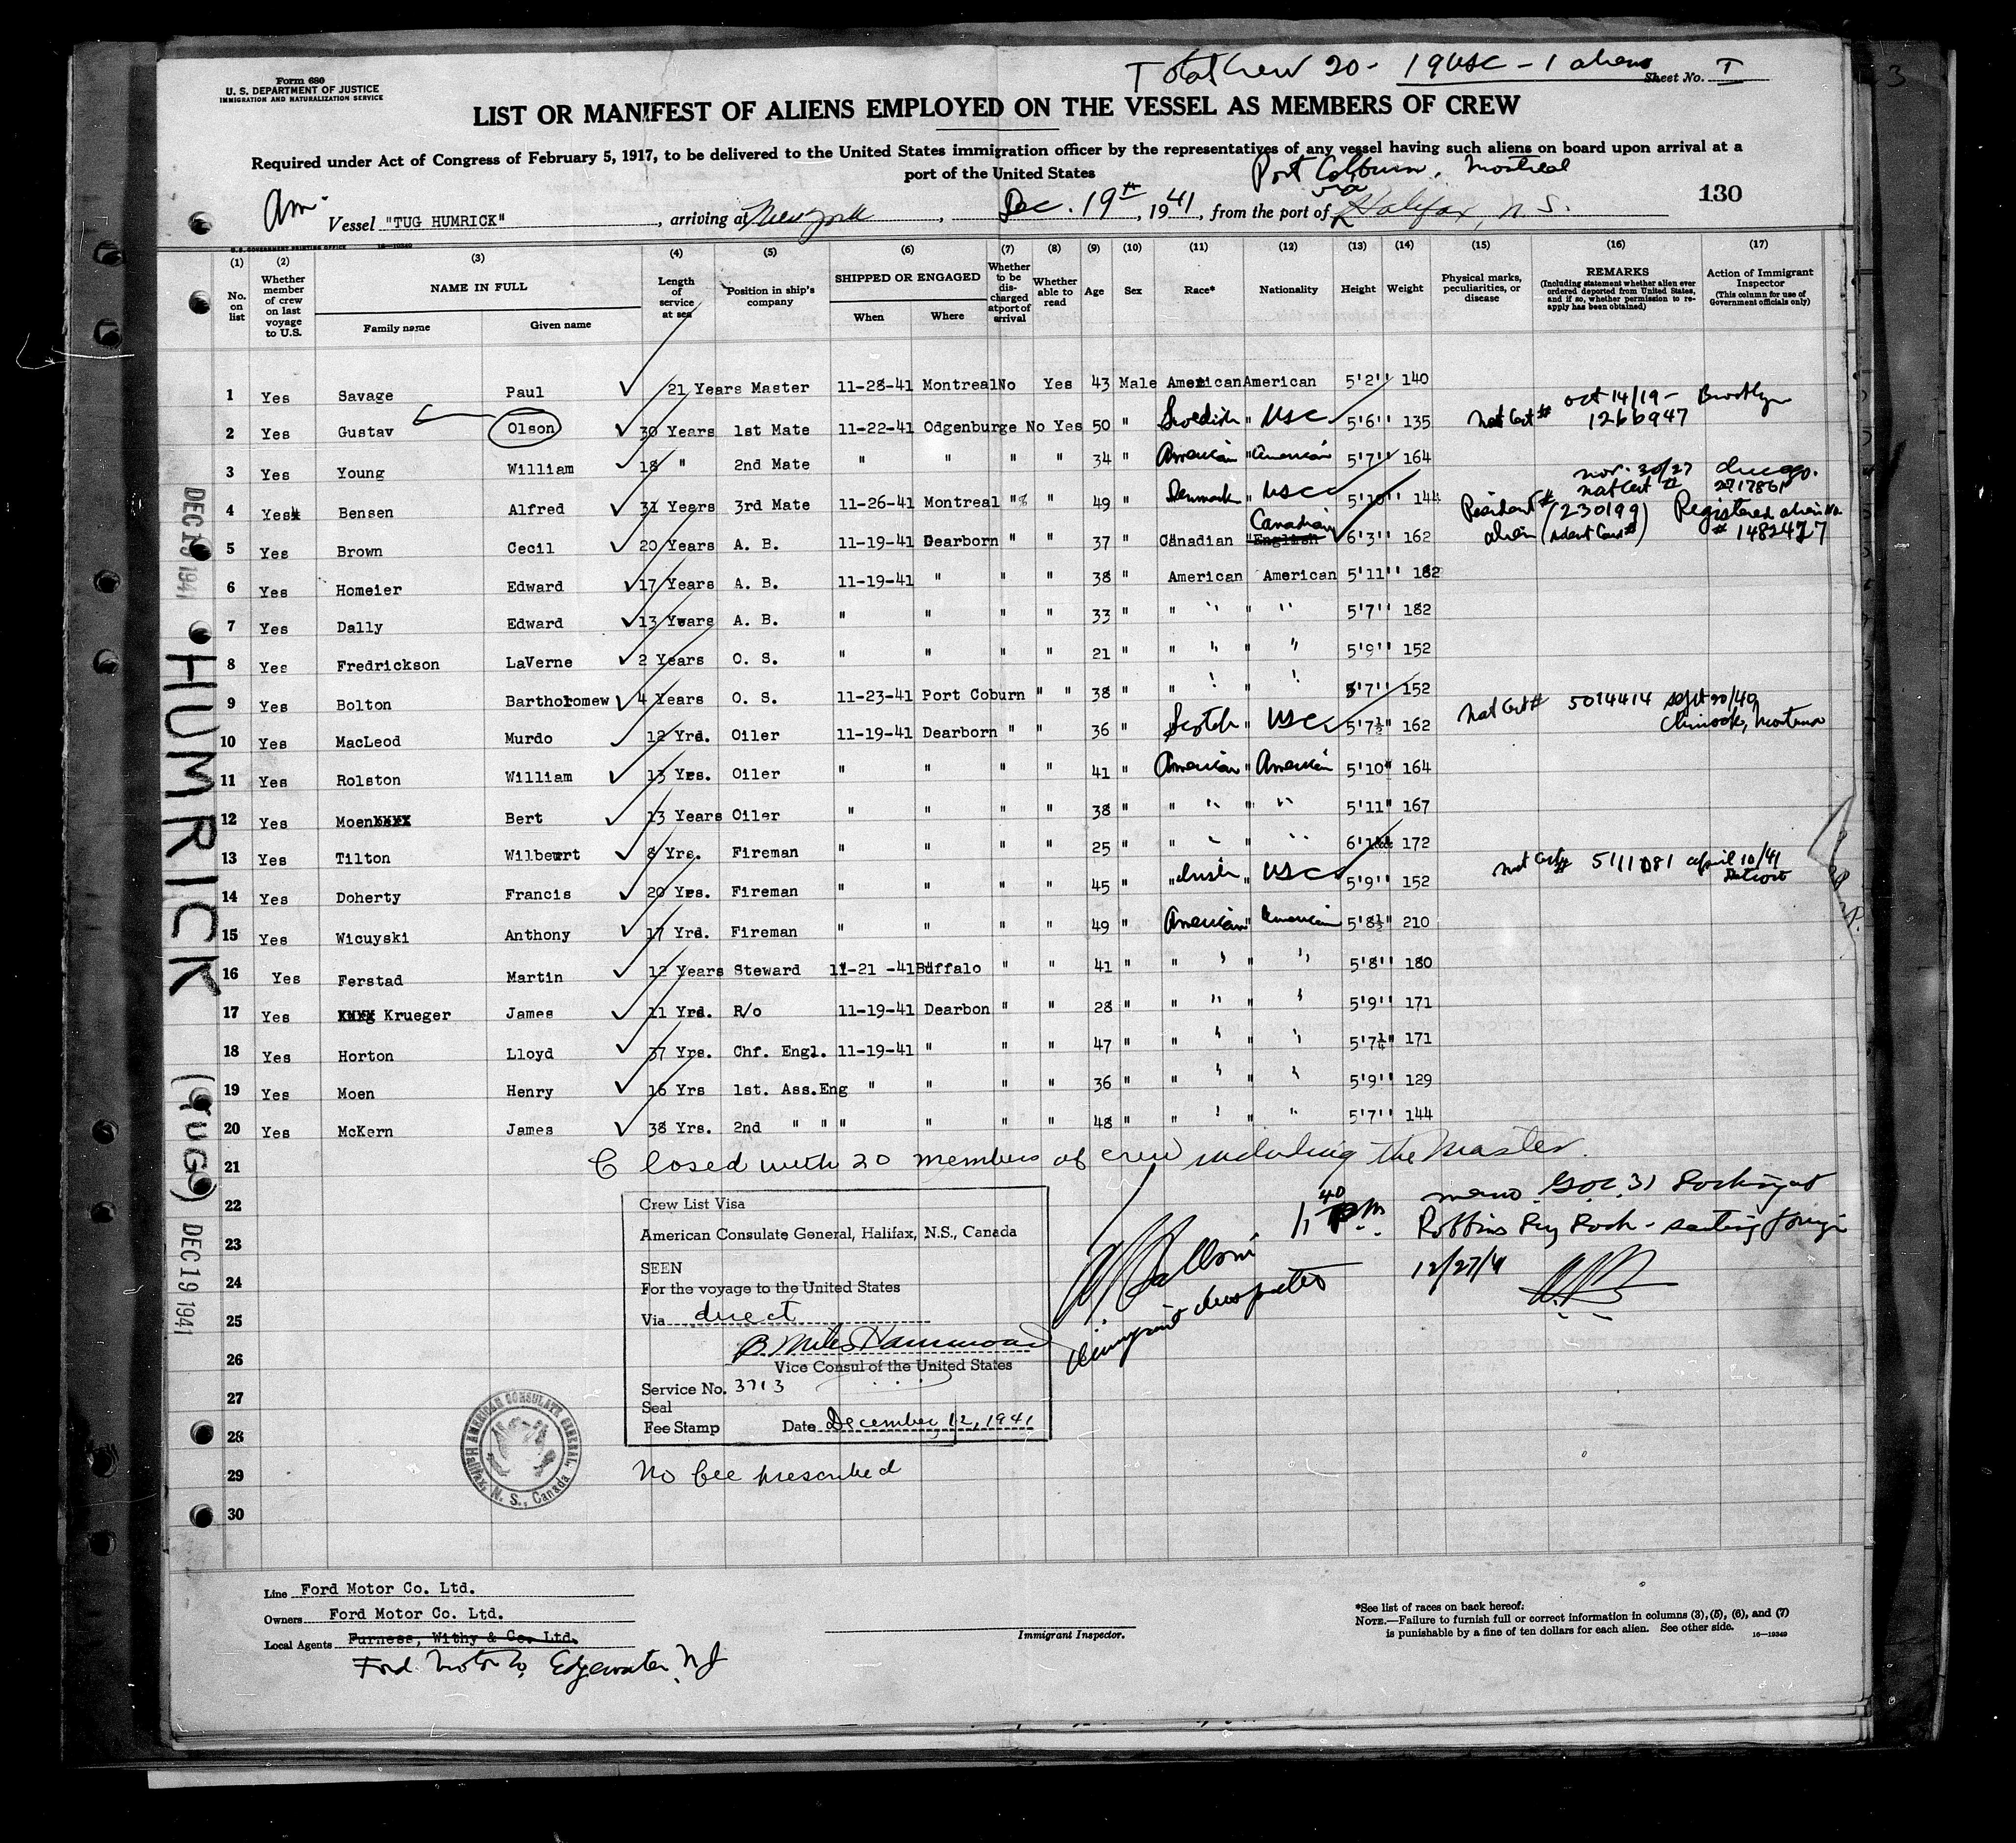 Total Crew 20 - 19 USC - 1 alien
Form 680
U. S. DEPARTMENT OF JUSTICE
IMMIGRATION AND NATURALIZATION SERVICE
Sheet No. I
3
LIST OR MANIFEST OF ALIENS EMPLOYED ON THE VESSEL AS MEMBERS OF CREW
Required under Act of Congress of February 5, 1917, to be delivered to the United States immigration officer by the representatives of any vessel having such aliens on board upon arrival at a
port of the United States
Port Colburn, Montreal
via
130
Am. Vessel "TUG HUMRICK", arriving at New York, Dec. 19th, 1941, from the port of Halifax, N.S.
U.S. GOVERNMENT PRINTING OFFICE 16-19349
(1) (2) (3) (4) (5) (6) (7) (8) (9) (10) (11) (12) (13) (14) (15) (16) (17)
No. on list
Whether member of crew on last voyage to U.S.
NAME IN FULL
Family name Given name
Length of service at sea
Position in ship's company
SHIPPED OR ENGAGED
When Where
Whether to be discharged at port of arrival
Whether able to read
Age
Sex
Race*
Nationality
Height
Weight
Physical marks, peculiarities, or disease
REMARKS
(Including statement whether alien ever ordered deported from United States, and if so, whether permission to reapply has been obtained)
Action of Immigrant Inspector
(This column for use of Government officials only)
1 Yes Savage Paul 21 Years Master 11-28-41 Montreal No Yes 43 Male American American 5'2'' 140
2 Yes Gustav Olson 30 Years 1st Mate 11-22-41 Odgenburge No Yes 50 " Swedish " USC 5'6'' 135 Nat Cert # 1266947 Oct 14/19 - Brooklyn
3 Yes Young William 18 " 2nd Mate " " " " 34 " American " American 5'7'' 164
4 Yes Bensen Alfred 31 Years 3rd Mate 11-26-41 Montreal " " 49 " Denmark USC 5'10'' 144 Nov. 30/27 Chicago. Nat Cert # 2717861
5 Yes Brown Cecil 20 Years A. B. 11-19-41 Dearborn " " 37 " Canadian "English Canadian 6'3'' 162 Resident alien # (230199) (Ident Card #) Registered alien No. # 1482427
6 Yes Homeier Edward 17 Years A. B. 11-19-41 " " " 38 " American American 5'11'' 162
7 Yes Dally Edward 13 Years A. B. " " " " 33 " " " 5'7'' 182
8 Yes Fredrickson LaVerne 2 Years O. S. " " " " 21 " " " 5'9'' 152
9 Yes Bolton Bartholomew 4 Years O. S. 11-23-41 Port Coburn " " 38 " " " 5'7'' 152
10 Yes MacLeod Murdo 12 Yrd. Oiler 11-19-41 Dearborn " " 36 " Scotch " USC 5'7½" 162 Nat Cert # 5014414 Sept 20/40, Chinook, Montana
11 Yes Rolston William 13 Yrs. Oiler " " " " 41 " American " American 5'10" 164
12 Yes Moen Bert 13 Years Oiler " " " " 38 " " " 5'11" 167
13 Yes Tilton Wilbeurt 8 Yrs. Fireman " " " " 25 " " " 172
14 Yes Doherty Francis 20 Yrs. Fireman " " " " 45 " "Irish " USC 5'9'' 152 Nat Cert # 5111081 April 10/41 Detroit
15 Yes Wicuyski Anthony 17 Yrd. Fireman " " " " 49 " American" American 5'8½" 210
16 Yes Ferstad Martin 12 Years Steward 11-21 -41 Buffalo " " 41 " " " 5'8'' 180
17 Yes Krueger James 11 Yrd. R/o 11-19-41 Dearbon " " 28 " " " 5'9'' 171
18 Yes Horton Lloyd 37 Yrs. Chf. Engl. 11-19-41 " " " 47 " " " 5'7¼" 171
19 Yes Moen Henry 16 Yrs 1st. Ass.Eng " " " " 36 " " " 5'9'' 129
20 Yes McKern James 38 Yrs. 2nd " " " " " " 48 " " " 5'7'' 144
21 Closed with 20 members of crew including the Master.
22
23
24
25
26
27
28
29
30
Crew List Visa
American Consulate General, Halifax, N.S., Canada
SEEN
For the voyage to the United States
Via direct
B. Miles Hammond
Vice Consul of the United States
Service No. 3713
Seal
Fee Stamp Date December 12, 1941
No fee prescribed
AMERICAN CONSULATE GENERAL,
Halifax, N. S., Canada
1 40 PM
Immigrant Inspector
12/27/41
DEC 19 1941
HUMRICK (TUG)
DEC 19 1941
Line Ford Motor Co. Ltd.
Owners Ford Motor Co. Ltd.
Local Agents Furness, Withy & Co. Ltd.
Ford Motor Co, Edgewater, NJ
Immigrant Inspector.
*See list of races on back hereof.
NOTE.—Failure to furnish full or correct information in columns (3), (5), (6), and (7)
is punishable by a fine of ten dollars for each alien. See other side. 16—19349